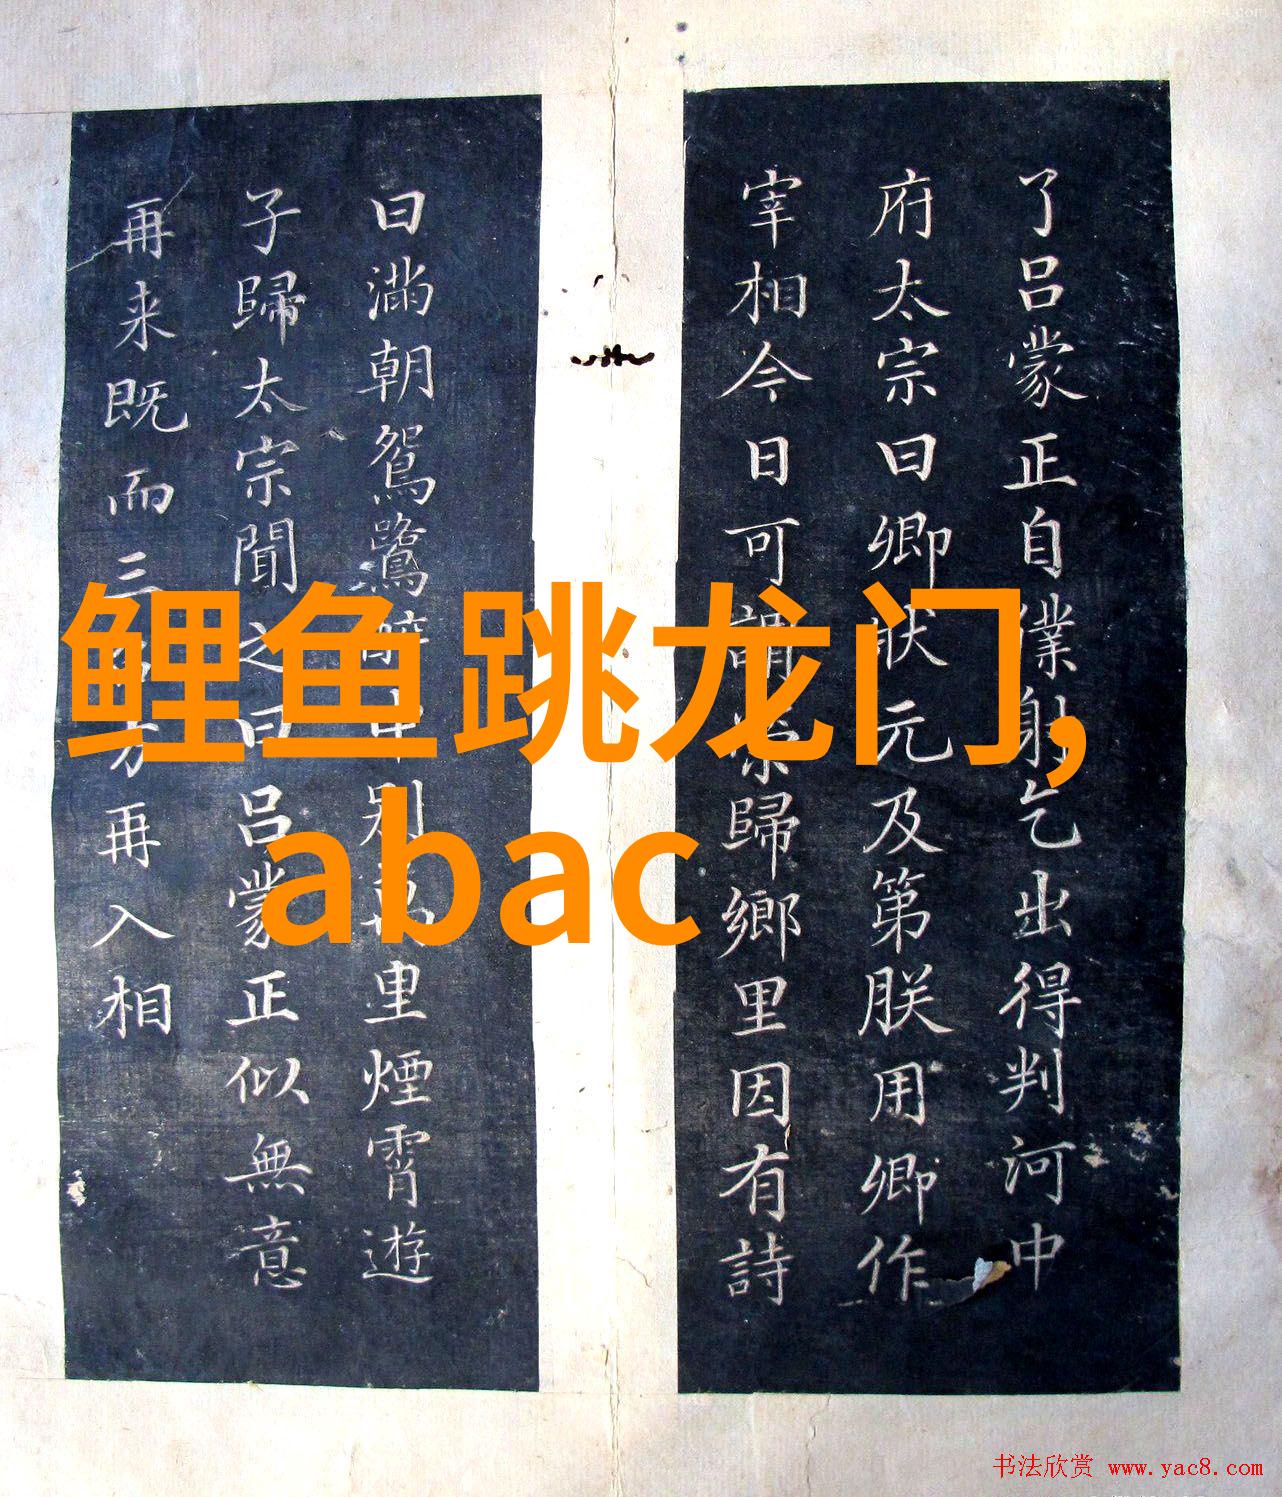 了吕蒙正自僕射乞出得判河中
府太宗曰卿状元及第朕用卿作
宰相今日可謂榮歸鄉里因有詩
曰滿朝鴛鷺醉中別萬里煙霄遊
子歸太宗聞之曰吕蒙正似無意
再来既而三
再入相
鲤鱼跳龙门,
abac
书法欣赏 www.yac8.com